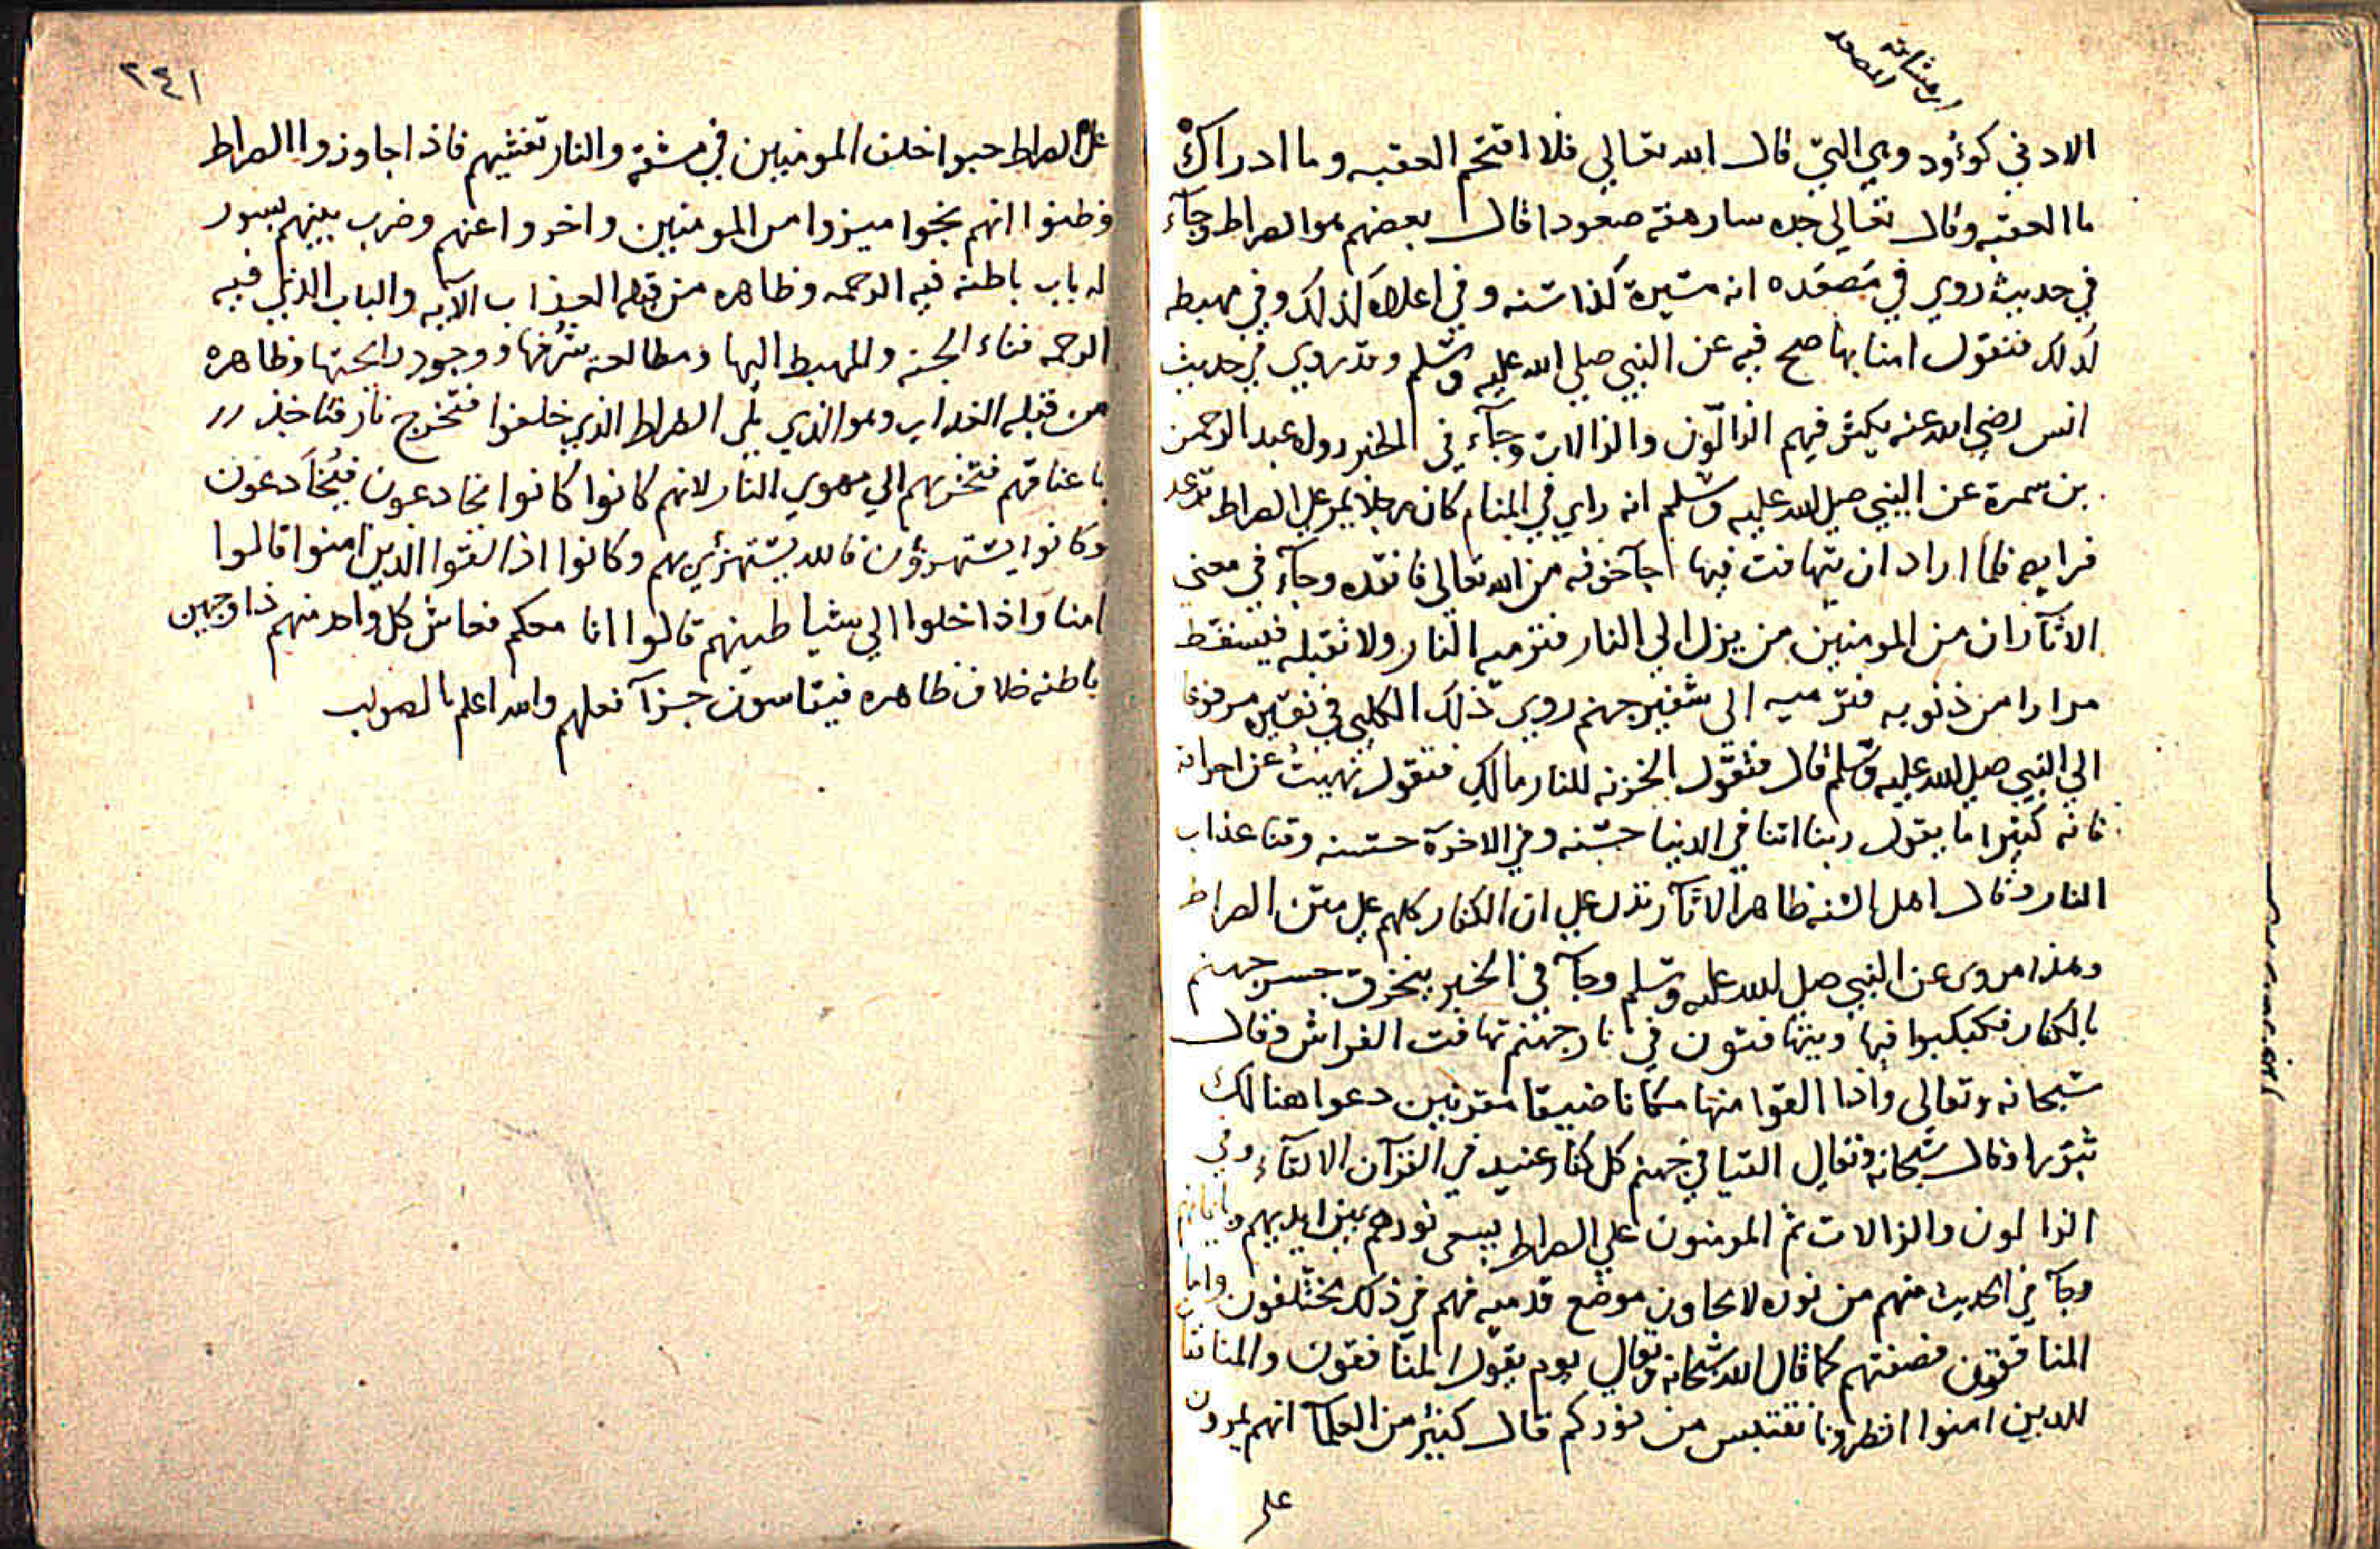 الادني كوؤود وهي التي قال الله تعالي فلا اقتحم العقبه وما ادراك
ما العقبه وقال تعالي جده سارهقه صعودا قال بعضهم هو الصراط وجآء
في حديث روي في مَصعَده انه مسيرة كذا سنه وفي اعلاه كذلك وفي مهبطه
كذلك فنقول امنا بما صح فيه عن النبي صلي الله عليه وسلم وقد روي في حديث
انس رضي الله عنه يكثر فيهم الزالّون والزالات وجآء في الخبر رواه عبد الرحمن
بن سمرة عن النبي صلي الله عليه وسلم انه راي في المنام كان رجلا يمر علي الصراط ترعد
فرايصه فلما اراد ان يتهافت فيها جآ خوفه من الله تعالي فانقده وجآء في معني
الاثآر ان من المومنين من يزل الي النار فترميه النار ولا تقبله فيسقط
مرارا من ذنوبه فترميه الي شفير جهنم روي ذلك الكلبي في تفسيره مرفوعا
الي النبي صلي الله عليه وسلم قال فتقول الخزنه للنار مالك فتقول نهيت عن احراقه
فانه كثيرا ما يقول ربنا اتنا في الدنيا حسنه وفي الاخرة حسنه وقنا عذاب
النار وقال اهل السنه ظاهر الاثآر تدل علي ان الكفار كلهم علي متن الصراط
وهذا مروي عن النبي صلي الله عليه وسلم وجآ في الخبر ينخرق جسر جهنم
بالكفار فكبكبوا فيها ويتهافتون في نار جهنم تهافت الفراش وقال
سبحانه وتعالي واذا القوا منها مكانا ضيقا مقرنين دعوا هنالك
ثبورا وقال سبحانه وتعالي القيا في جهنم كل كفار عنيد في القرآن الالقآء وفي
الزالون والزالات ثم المومنون علي الصراط يسعي نورهم بين ايديهم وبايمانهم
وجآ في الحديث منهم من نوره لا يجاوز موضع قدميه فهم في ذلك مختلفون واما
المنافقون فصفتهم كما قال الله سبحانه وتعالي يوم يقول المنافقون والمنافقا
للدين امنوا انظرونا نقتبس من نوركم قال كثير من العلمآ انهم يمرون
علي
٢٤١
علي الصراط حبوا خلف المومنين في مشقة والنار تغشيهم فاذا جاوزوا الصراط
وظنوا انهم نجوا ميزوا من المومنين واخروا عنهم وضرب بينهم بسور
له باب باطنه فيه الرحمه وظاهره من قبله العذاب الآيه والباب الذي فيه
الرحمه فناء الجنه والمهبط اليها ومطالعة شُرَفها ووجود رائحتها وظاهره
من قبله العذاب وهو الذي يلي الصراط الذي خلفوا فتخرج نار فتاخذ
باعناقهم فتخزيهم الي مهوي النار لانهم كانوا كانوا يخادعون فيُخادَعون
وكانوا يستهزؤن فالله يستهزيء بهم وكانوا اذا لقوا الذين امنوا قالوا
امنا واذا خلوا الي شياطينهم قالوا انا معكم فعاش كل واحد منهم ذا وجهين
باطنه خلاف ظاهره فيقاسون جزآ فعلهم والله اعلم بالصواب